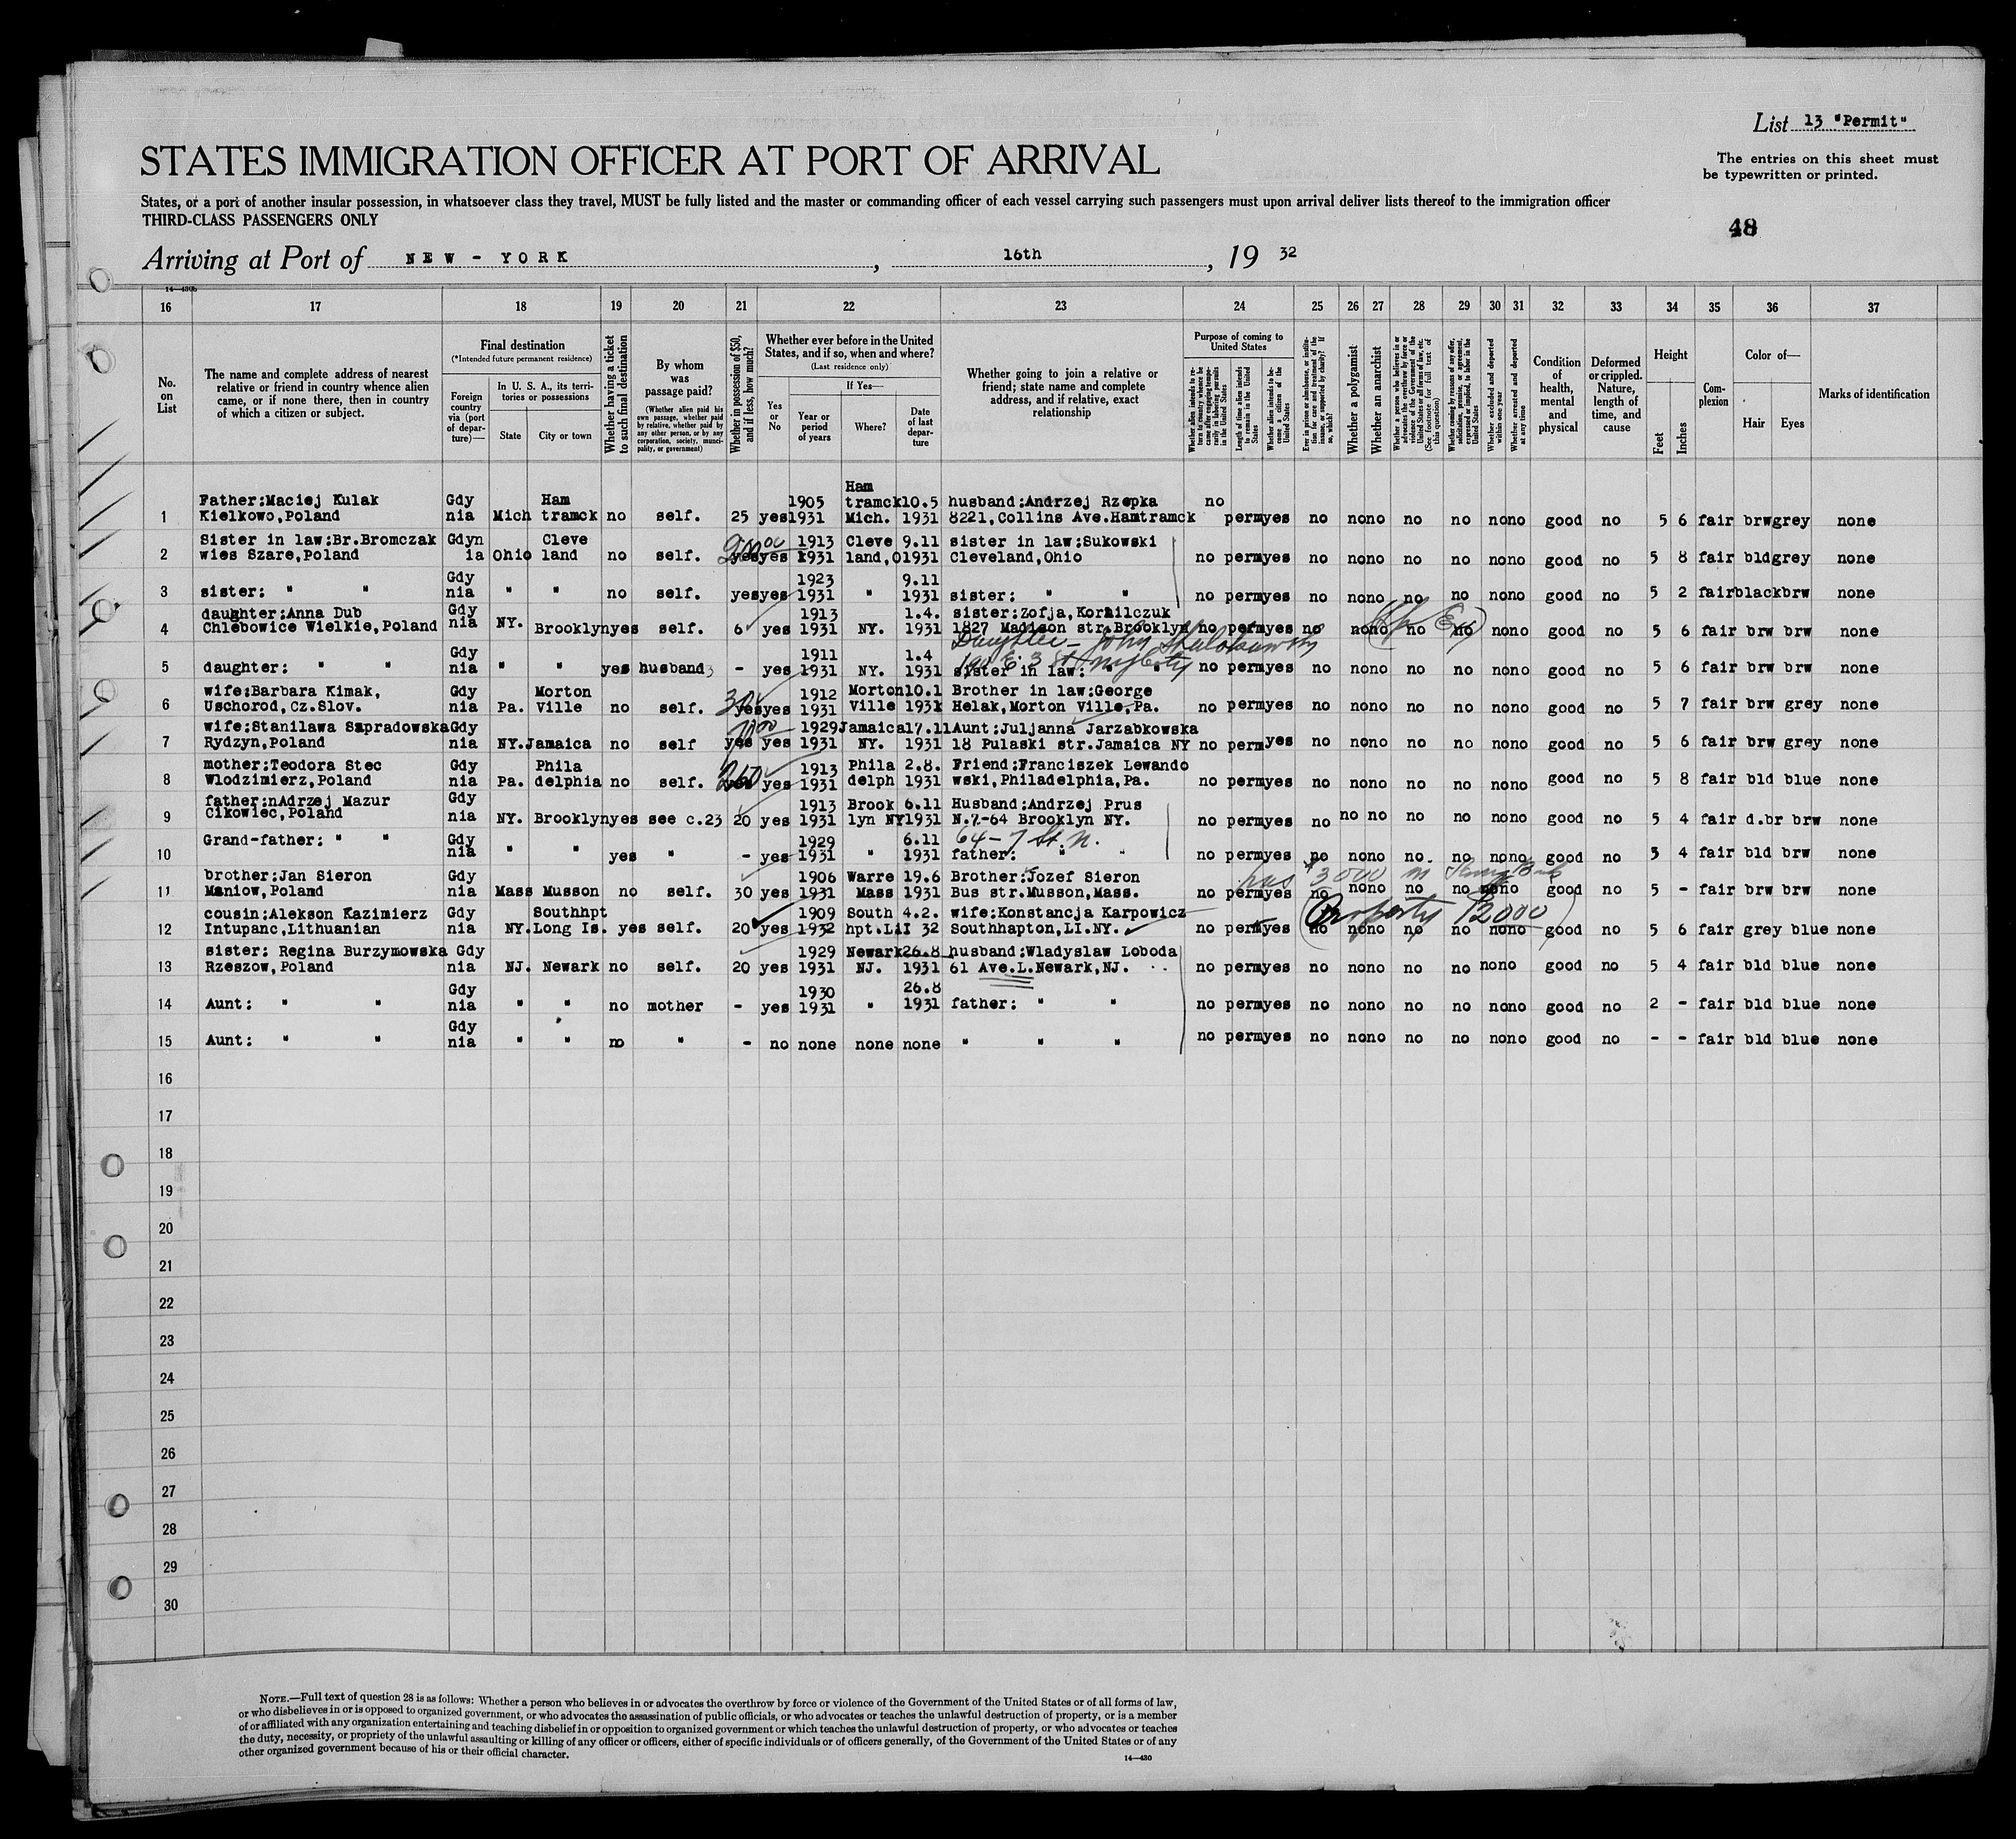 List 13 "Permit"
STATES IMMIGRATION OFFICER AT PORT OF ARRIVAL
The entries on this sheet must
be typewritten or printed.
States, or a port of another insular possession, in whatsoever class they travel, MUST be fully listed and the master or commanding officer of each vessel carrying such passengers must upon arrival deliver lists thereof to the immigration officer
THIRD-CLASS PASSENGERS ONLY
48
Arriving at Port of NEW - YORK, 16th, 19 32
14-430b
16 17 18 19 20 21 22 23 24 25 26 27 28 29 30 31 32 33 34 35 36 37
No. on List
The name and complete address of nearest relative or friend in country whence alien came, or if none there, then in country of which a citizen or subject.
Final destination
(*Intended future permanent residence)
Foreign country via (port of departure)—
In U. S. A., its territories or possessions
State
City or town
Whether having a ticket to such final destination
By whom was passage paid?
(Whether alien paid his own passage, whether paid by relative, whether paid by any other person, or by any corporation, society, municipality, or government)
Whether in possession of $50, and if less, how much?
Whether ever before in the United States, and if so, when and where?
(Last residence only)
Yes or No
If Yes—
Year or period of years
Where?
Date of last departure
Whether going to join a relative or friend; state name and complete address, and if relative, exact relationship
Purpose of coming to United States
Whether alien intends to return to country whence he came after engaging temporarily in laboring pursuits in the United States
Length of time alien intends to remain in the United States
Whether alien intends to become a citizen of the United States
Ever in prison or almshouse, or institution for care and treatment of the insane, or supported by charity? If so, which?
Whether a polygamist
Whether an anarchist
Whether a person who believes in or advocates the overthrow by force or violence of the Government of the United States or all forms of law, etc. (See footnote for full text of this question)
Whether coming by reasons of any offer, solicitation, promise, or agreement, expressed or implied, to labor in the United States
Whether excluded and deported within one year
Whether arrested and deported at any time
Condition of health, mental and physical
Deformed or crippled. Nature, length of time, and cause
Height
Feet
Inches
Complexion
Color of—
Hair
Eyes
Marks of identification
Ham
Father:Maciej Kulak Gdy Ham 1905 tramck 10.5 husband:Andrzej Rzepka no
1 Kielkowo,Poland nia Mich tramck no self. 25 yes 1931 Mich. 1931 8221,Collins Ave.Hamtramck perm yes no no no no no no no good no 5 6 fair brw grey none
Sister in law:Br.Bromczak Gdyn Cleve 1913 Cleve 9.11 sister in law:Sukowski
2 wies Szare,Poland ia Ohio land no self. yes yes 1931 land,O 1931 Cleveland,Ohio no perm yes no no no no no no no good no 5 8 fair bld grey none
Gdy 1923 9.11
3 sister: " " nia " " no self. yes yes 1931 " 1931 sister: " " no perm yes no no no no no no no good no 5 2 fair black brw none
daughter:Anna Dub Gdy 1913 1.4. sister:Zofja,Kornilczuk
4 Chlebowice Wielkie,Poland nia NY. Brooklyn yes self. 6 yes 1931 NY. 1931 1827 Madison str.Brooklyn no perm yes no no no no no no no good no 5 6 fair brw brw none
Daughter - John
Gdy 1911 1.4
5 daughter: " " nia " " yes husband - yes 1931 NY. 1931 sister in law: " " no perm yes no no no no no no no good no 5 6 fair brw brw none
wife:Barbara Kimak, Gdy Morton 1912 Morton 10.1 Brother in law:George
6 Uschorod,Cz.Slov. nia Pa. Ville no self. yes yes 1931 Ville 1931 Helak,Morton Ville,Pa. no perm yes no no no no no no no good no 5 7 fair brw grey none
wife:Stanilawa Szpradowska Gdy 1929 Jamaica 17.11 Aunt:Juljanna Jarzabkowska
7 Rydzyn,Poland nia NY. Jamaica no self yes yes 1931 NY. 1931 18 Pulaski str.Jamaica NY no perm yes no no no no no no no good no 5 6 fair brw grey none
mother:Teodora Stec Gdy Phila 1913 Phila 2.8. Friend:Franciszek Lewando
8 Wlodzimierz,Poland nia Pa. delphia no self. 260 yes 1931 delph 1931 wski,Philadelphia,Pa. no perm yes no no no no no no no good no 5 8 fair bld blue none
father:nAdrzej Mazur Gdy 1913 Brook 6.11 Husband:Andrzej Prus
9 Cikowiec,Poland NY. Brooklyn yes see c.23 20 yes 1931 lyn NY 1931 N.7-64 Brooklyn NY. no perm yes no no no no no no no good no 5 4 fair d.br brw none
Grand-father: " " Gdy 1929 6.11 64-7 St. N.
10 nia " " yes " - yes 1931 " 1931 father: " " no perm yes no no no no no no no good no 3 4 fair bld brw none
brother:Jan Sieron Gdy 1906 Warre 19.6 Brother:Jozef Sieron has $3000 in
11 Maniow,Poland nia Mass Musson no self. 30 yes 1931 Mass 1931 Bus str.Musson,Mass. no perm yes no no no no no no no good no 5 - fair brw brw none
cousin:Alekson Kazimierz Gdy Southhpt 1909 South 4.2. wife:Konstancja Karpowicz (Property $2000)
12 Intupanc,Lithuanian nia NY. Long Is. yes self. 20 yes 1932 hpt.LI 32 Southhapton,LI.NY. no perm yes no no no no no no no good no 5 6 fair grey blue none
sister: Regina Burzymowska Gdy 1929 Newark 26.8 husband:Wladyslaw Loboda
13 Rzeszow,Poland nia NJ. Newark no self. 20 yes 1931 NJ. 1931 61 Ave.L.Newark,NJ. no perm yes no no no no no no no good no 5 4 fair bld blue none
Gdy 1930 26.8
14 Aunt: " " nia " " no mother - yes 1931 " 1931 father: " " no perm yes no no no no no no no good no 2 - fair bld blue none
Gdy
15 Aunt: " " nia " " no " - no none none none " " " no perm yes no no no no no no no good no - - fair bld blue none
16
17
18
19
20
21
22
23
24
25
26
27
28
29
30
NOTE.—Full text of question 28 is as follows: Whether a person who believes in or advocates the overthrow by force or violence of the Government of the United States or of all forms of law,
or who disbelieves in or is opposed to organized government, or who advocates the assassination of public officials, or who advocates or teaches the unlawful destruction of property, or is a member
of or affiliated with any organization entertaining and teaching disbelief in or opposition to organized government or which teaches the unlawful destruction of property, or who advocates or teaches
the duty, necessity, or propriety of the unlawful assaulting or killing of any officer or officers, either of specific individuals or of officers generally, of the Government of the United States or of any
other organized government because of his or their official character.
14—430